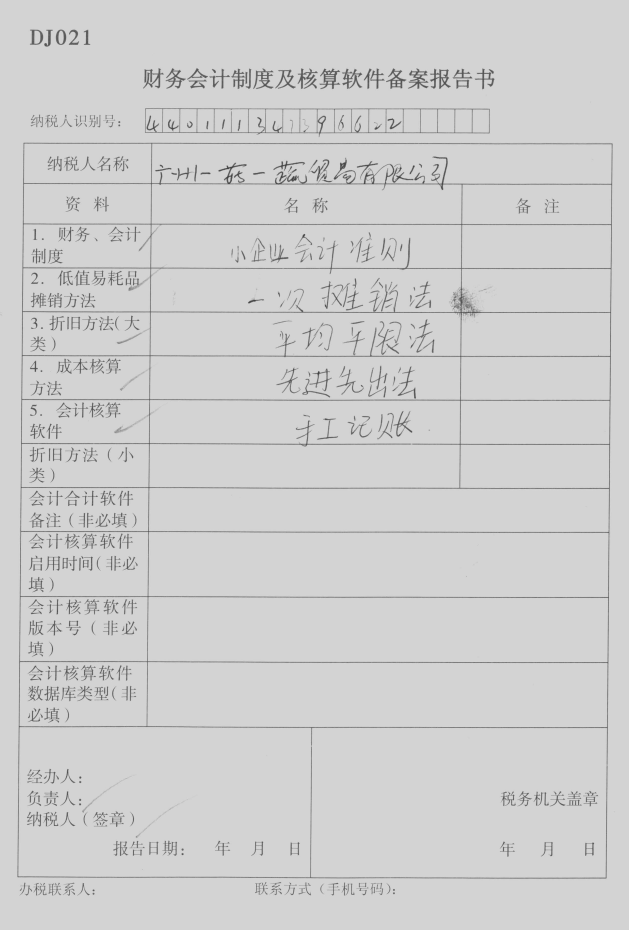 DJ021
财务会计制度及核算软件备案报告书
纳税人识别号：
纳税人名称 广州一 一 贸易有限公司
资 料 名 称 备 注
1．财务、会计
制度
小企业会计准则
2．低值易耗品
摊销方法
一次摊销法
3. 折旧方法（大
类）
平均年限法
4．成本核算
方法
先进先出法
5．会计核算
软件
手工记账
折旧方法（小
类）
会计合计软件
备注（非必填）
会计核算软件
启用时间（非必
填）
会计核算软件
版本号（非必
填）
会计核算软件
数据库类型（非
必填）
经办人：
负责人：
纳税人（签章）
报告日期： 年 月 日
税务机关盖章
年 月 日
办税联系人： 联系方式（手机号码）：